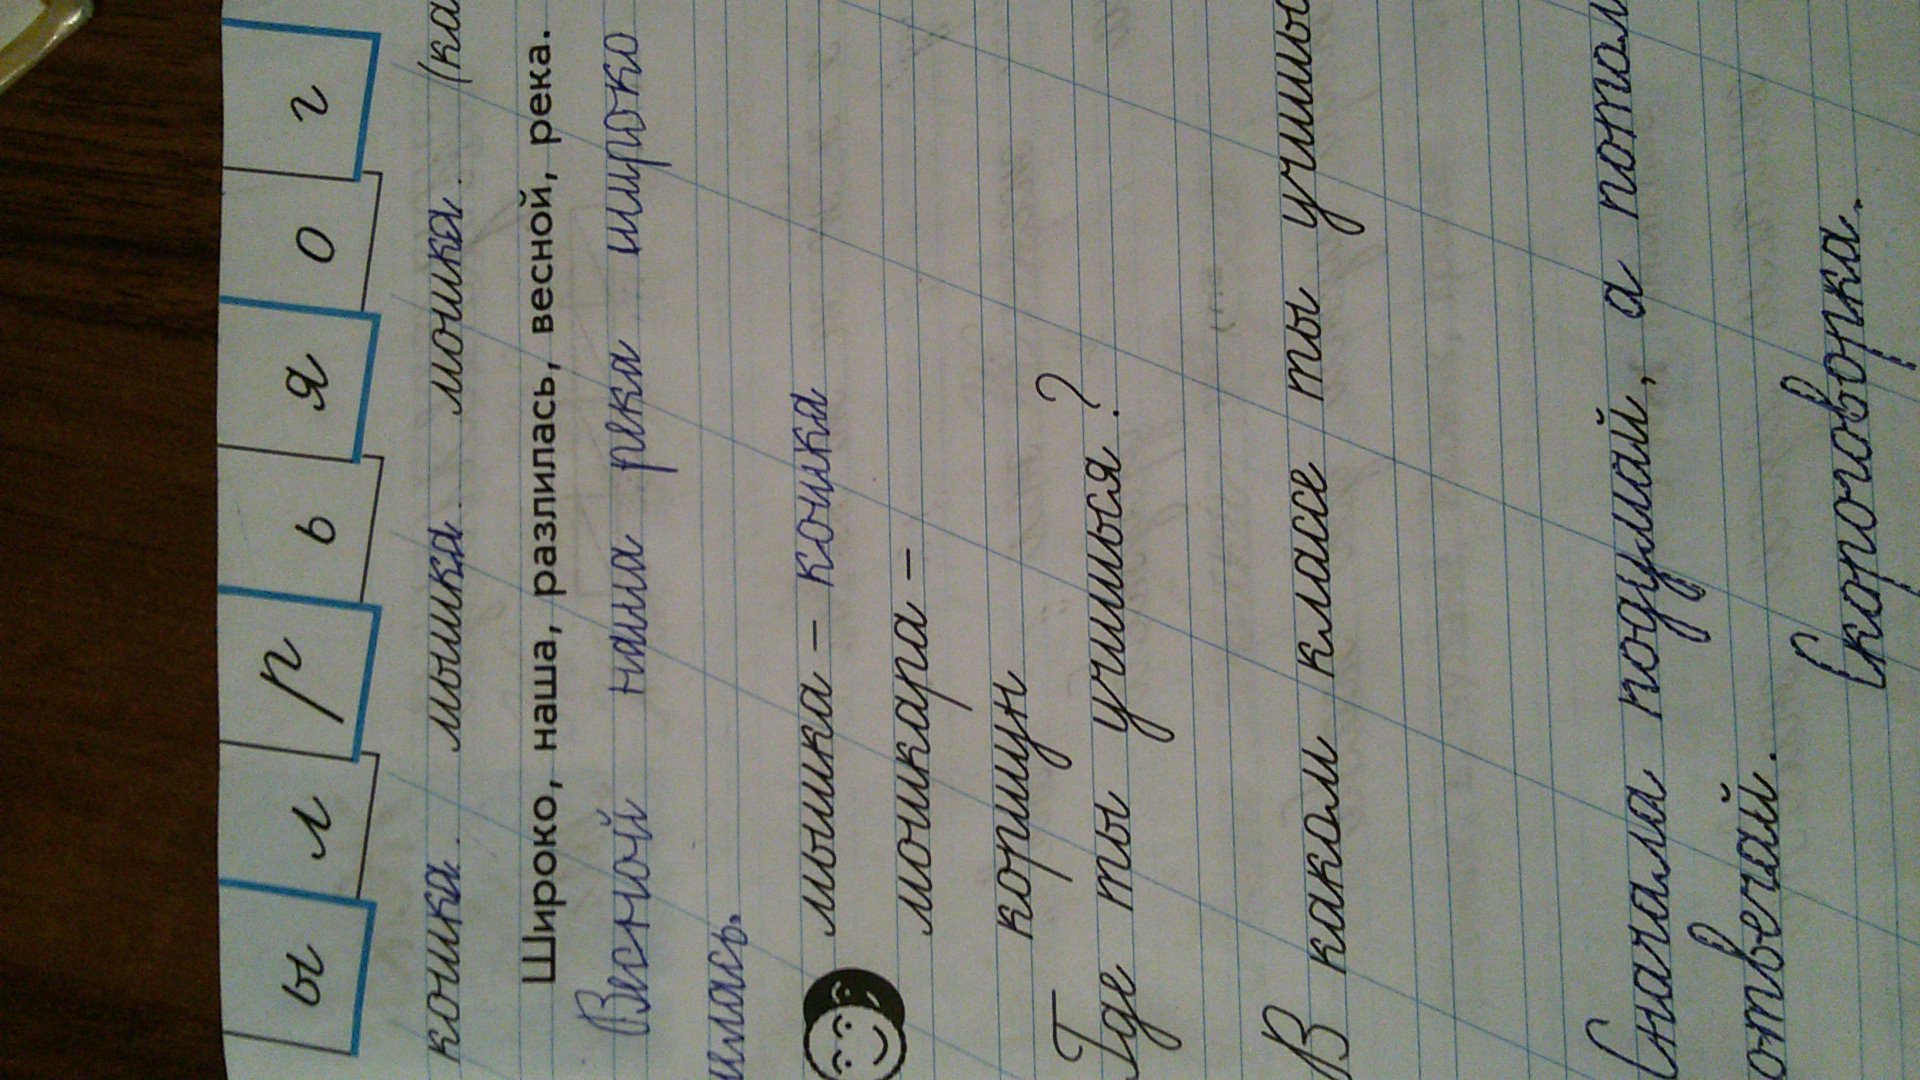 ы л р ь я о г
кошка. мышка. мошка. (ка
Широко, наша, разлилась, весной, река.
Весной наша река широко
илась.
мышка – кошка
мошкара –
коршун
Где ты учишься?
В каком классе ты учишь
Сначала подумай, а потом
отвечай.
Скороговорка.